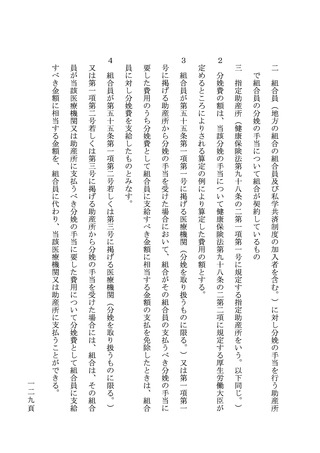 二　組合員（地方の組合の組合員及び私学共済制度の加入者を含む。）に対し分娩の手当を行う助産所
で組合員の分娩の手当について組合が契約しているもの
三　指定助産所（健康保険法第九十八条の二第一項第一号に規定する指定助産所をいう。以下同じ。）
２　分娩費の額は、当該分娩の手当について健康保険法第九十八条の二第二項に規定する厚生労働大臣が
定めるところによりされる算定の例により算定した費用の額とする。
３　組合員が第五十五条第一項第一号に掲げる医療機関（分娩を取り扱うものに限る。）又は第一項第一
号に掲げる助産所から分娩の手当を受けた場合において、組合がその組合員の支払うべき分娩の手当に
要した費用のうち分娩費として組合員に支給すべき金額に相当する金額の支払を免除したときは、組合
員に対し分娩費を支給したものとみなす。
４　組合員が第五十五条第一項第二号若しくは第三号に掲げる医療機関（分娩を取り扱うものに限る。）
又は第一項第二号若しくは第三号に掲げる助産所から分娩の手当を受けた場合には、組合は、その組合
員が当該医療機関又は助産所に支払うべき分娩の手当に要した費用について分娩費として組合員に支給
すべき金額に相当する金額を、組合員に代わり、当該医療機関又は助産所に支払うことができる。
一二九頁